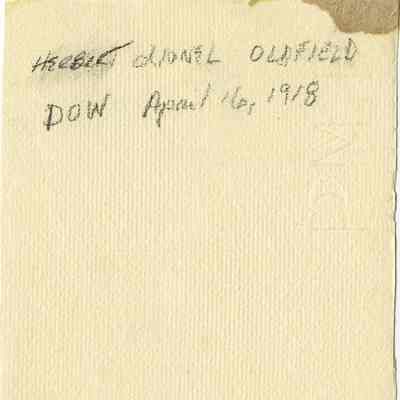 HERBERT LIONEL OLDFIELD
DOW April 16, 1918